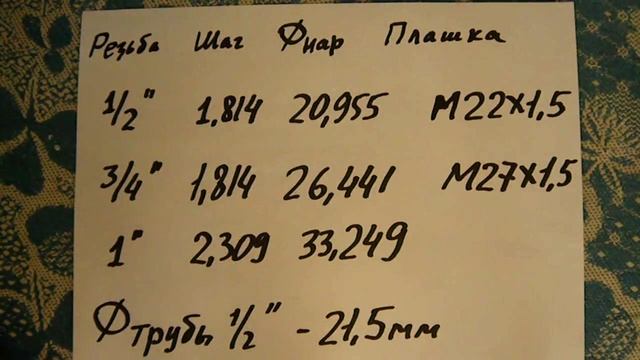 Резьба Шаг Фнар Плашка
1/2" 1,814 20,955 М22х1,5
3/4" 1,814 26,441 М27х1,5
1" 2,309 33,249
Ф трубы 1/2" - 21,5мм